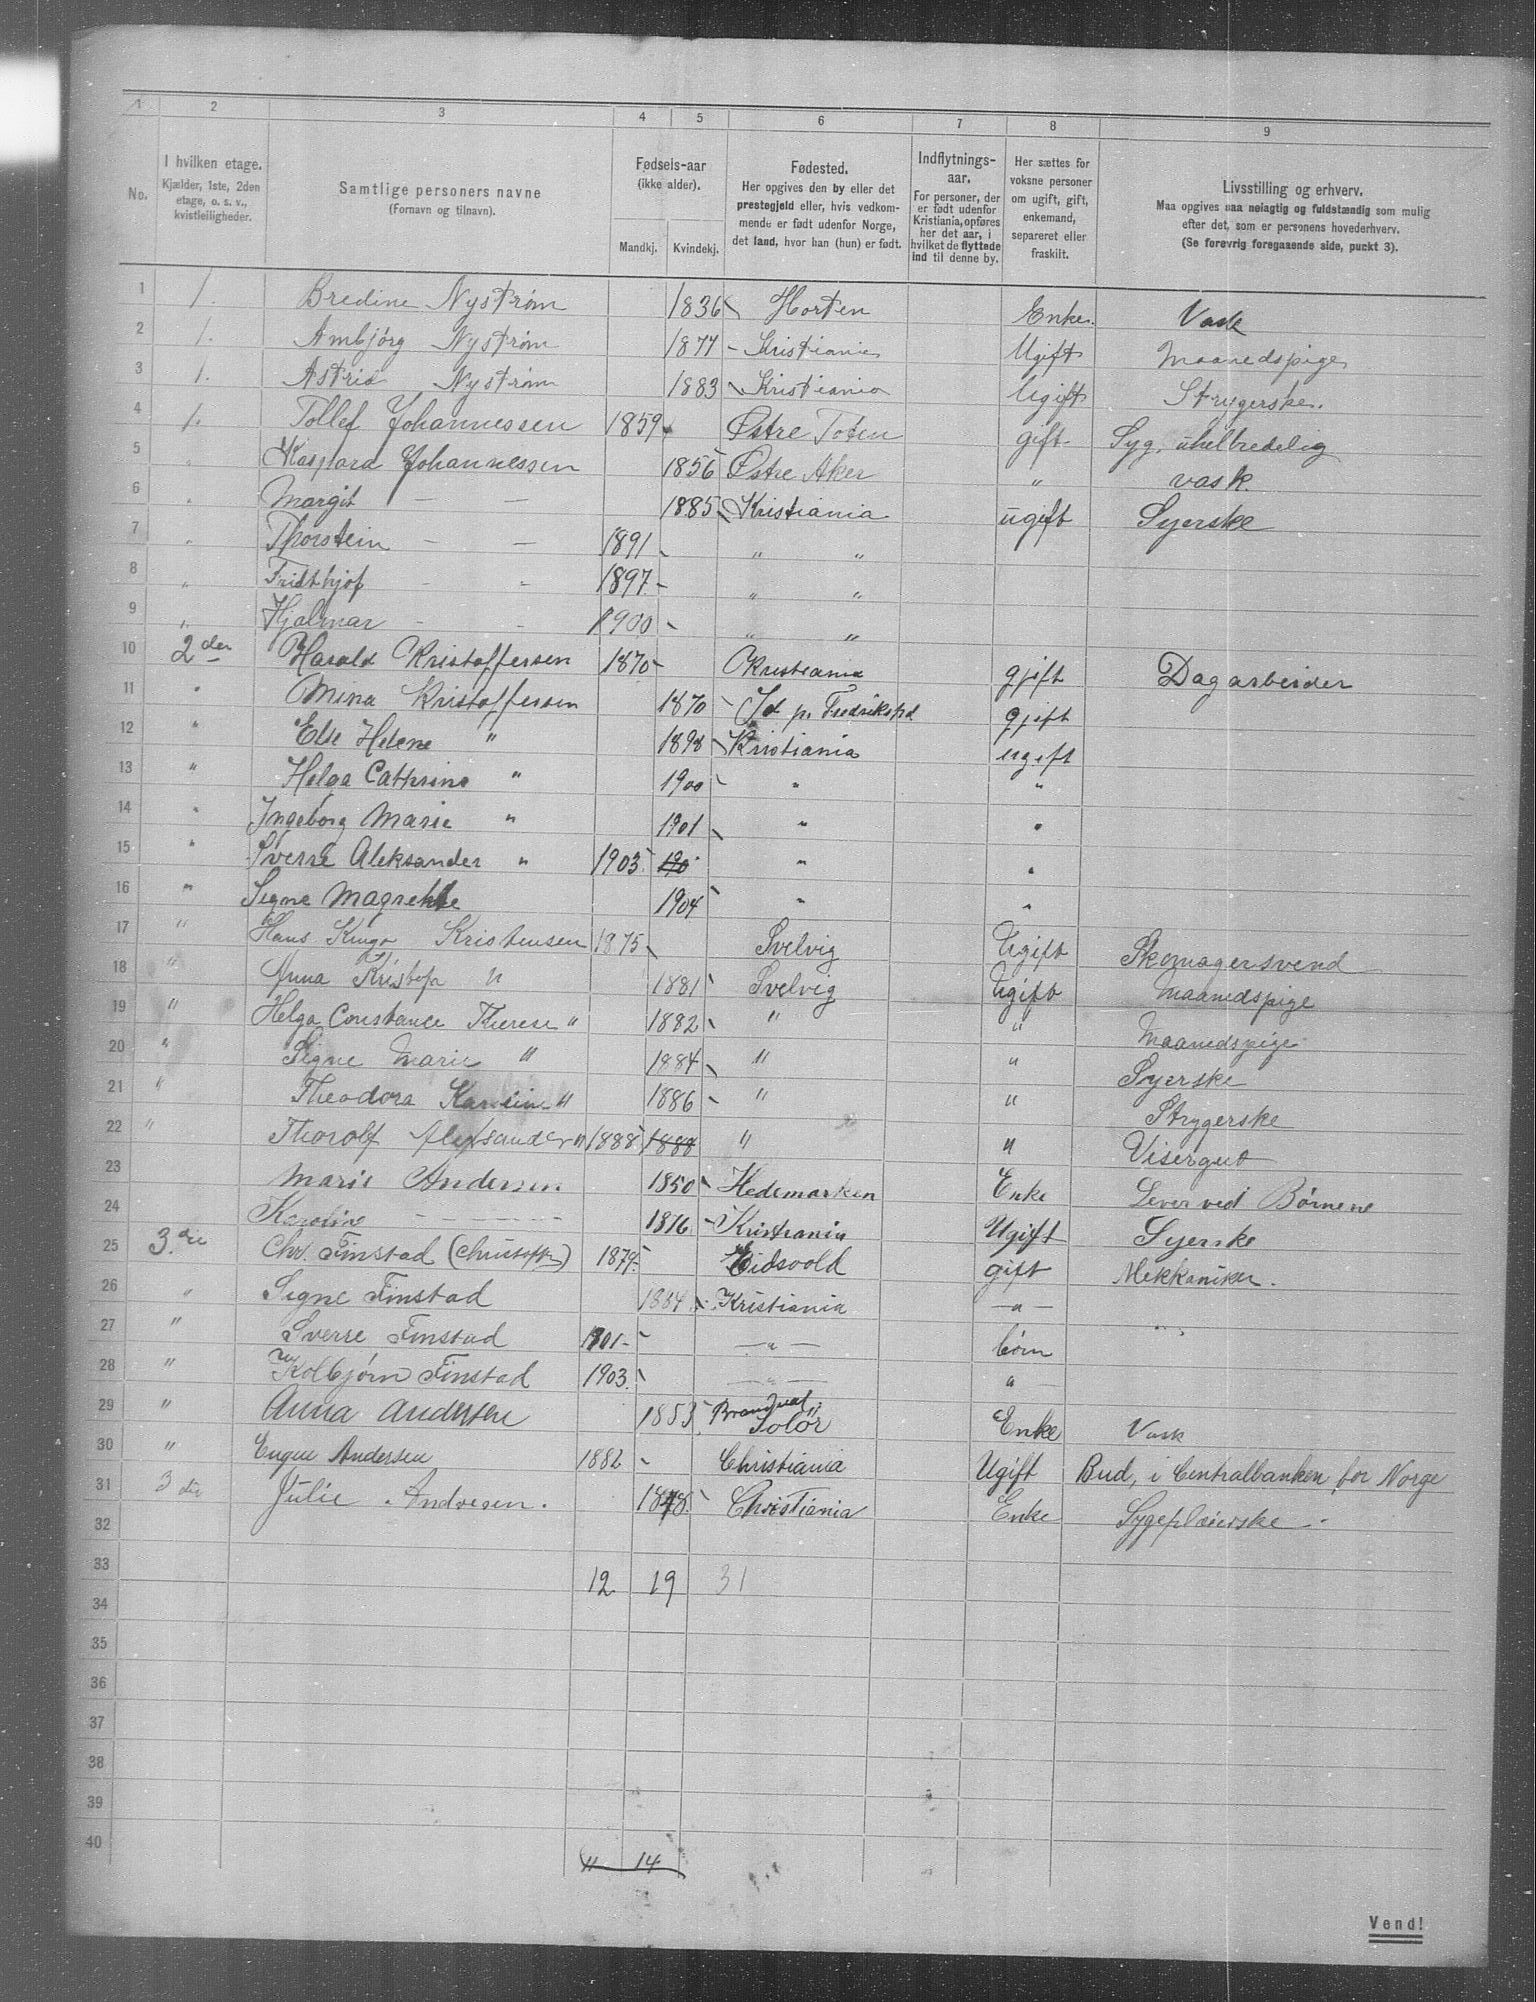 1 2 3 4 5 6 7 8 9
No.
I hvilken etage.
Kjælder, 1ste, 2den
etage, o. s. v.,
kvistleiligheder.
Samtlige personers navne
(Fornavn og tilnavn).
Fødsels-aar
(ikke alder).
Mandkj. Kvindekj.
Fødested.
Her opgives den by eller det
prestegjeld eller, hvis vedkom-
mende er født udenfor Norge,
det land, hvor han (hun) er født.
Indflytnings-
aar.
For personer, der
er født udenfor
Kristiania, opføres
her det aar, i
hvilket de flyttede
ind til denne by.
Her sættes for
voksne personer
om ugift, gift,
enkemand,
separeret eller
fraskilt.
Livsstilling og erhverv.
Maa opgives saa nøiagtig og fuldstændig som mulig
efter det, som er personens hovederhverv.
(Se forøvrig foregaaende side, punkt 3).
1 1. Bredine Nystrøm 1836 Horten Enke. Vask
2 1. Ambjørg Nystrøm 1877 Kristiania Ugift Maanedspige
3 1. Astrid Nystrøm 1883 Kristiania Ugift Strygerske.
4 1. Tollef Johannessen 1859 Østre Toten gift Syg, uhelbredelig
5 " Kaspara Johannessen 1856 Østre Aker " vask.
6 " Margit — — 1885 Kristiania ugift Syerske
7 " Thorstein — — 1891 " "
8 " Fridthjof — - 1897 " "
9 " Hjalmar - - 1900 " "
10 2den Harald Kristoffersen 1870 Kristiania gjift Dagarbeider
11 " Mina Kristoffersen 1870 Id pr Fredrikshd gjift
12 " Else Helene " 1898 Kristiania ugift
13 " Helga Cathrine " 1900 " "
14 " Ingeborg Marie " 1901 " "
15 " Sverre Aleksander " 1903 190 " "
16 " Signe Magrehte 1904 " "
17 " Hans Kristensen 1875 Svelvig Ugift Skomagersvend
18 " Anna " 1881 Svelvig Ugift Maanedspige
19 " Helga Constance Therese " 1882 " " Maanedspige
20 " Signe Marie " 1884 " " Syerske
21 " Theodora " 1886 " " Strygerske
22 " Thorolf Aleksander " 1888 1888 " " Visergut
23 Marie Andersen 1850 Hedemarken Enke Lever ved Børnene
24 Karoline — — — 1876 Kristiania Ugift Syerske
25 3.die Chr. Finstad (Christoffer) 1879 Eidsvold gift Mekkaniker.
26 " Signe Finstad 1884 Kristiania —"—
27 " Sverre Finstad 1901 —"— børn
28 " Kolbjørn Finstad 1903 —"— "
29 " Anna Andersen 1853 Brandval Solør Enke Vask
30 " Andersen 1882 Christiania Ugift Bud, i Centralbanken for Norge
31 3die Julie Andresen. 1848 Christiania Enke Sygepleierske
32
33 12 19 31
34
35
36
37
38
39
40
11 14
Vend!